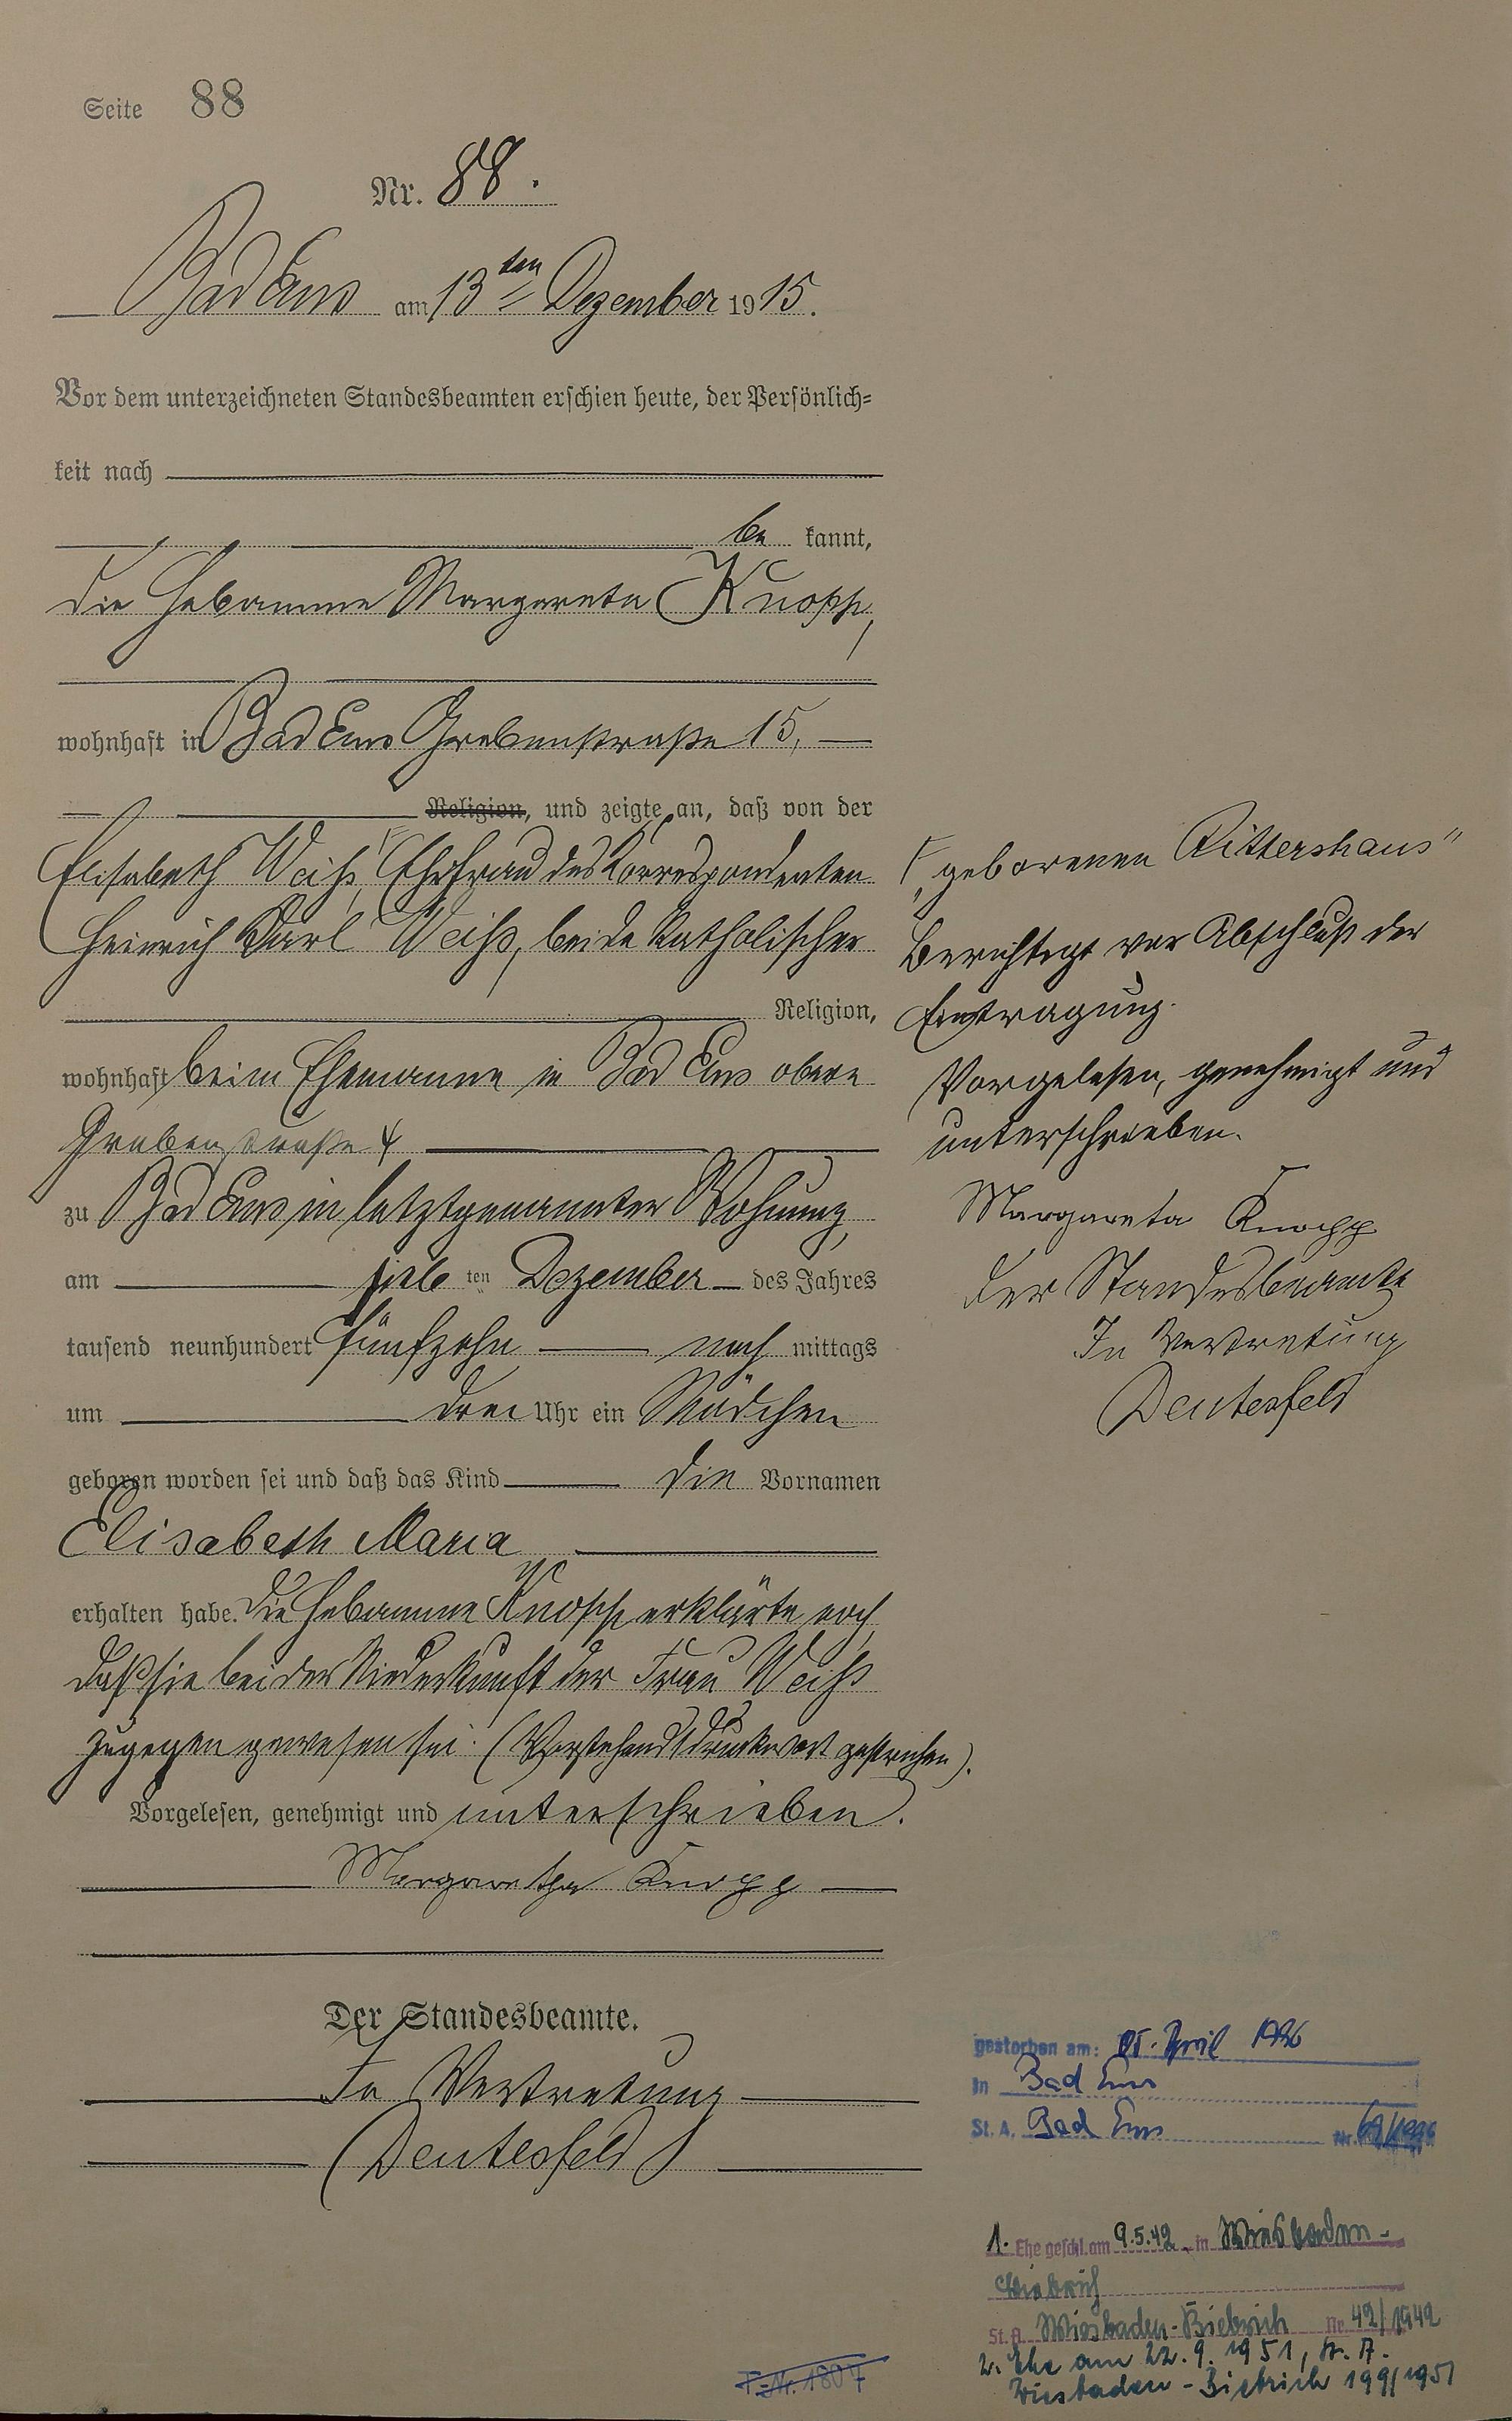 Seite 88
Nr. 88.
Bad Ems am 13ten Dezember 1915.
Vor dem unterzeichneten Standesbeamten erschien heute, der Persönlich-
keit nach
be kannt,
die Hebamme Margareta Knopp,
wohnhaft in Bad Ems Grabenstraße 15,
Religion, und zeigte an, daß von der
Elisabeth Weiß, Ehefrau des Korrespondenten
Heinrich Karl Weiß, beide katholischer
Religion,
wohnhaft beim Ehemanne in Bad Ems obere
Grabenstraße 4
zu Bad Ems in letztgenannter Wohnung,
am sieb ten Dezember des Jahres
tausend neunhundert fünfzehn nach mittags
um drei Uhr ein Mädchen
geboren worden sei und daß das Kind die Vornamen
Elisabeth Maria
erhalten habe. Die Hebamme Knopp erklärte noch,
daß sie bei der Niederkunft der Frau Weiß
zugegen gewesen sei. (Vorstehend 1 Druckwort gestrichen).
Vorgelesen, genehmigt und unterschrieben.
Margaretha Knopp
Der Standesbeamte.
In Vertretung
Deutesfeld
"geborenen Rittershaus"
Berichtigt vor Abschluß der
Eintragung.
Vorgelesen, genehmigt und
unterschrieben.
Margareta Knopp
Der Standesbeamte
In Vertretung
Deutesfeld
gestorben am: April 1996
in Bad Ems
St. A. Bad Ems Nr. /1996
1. Ehe geschl. am 9.5.42 in Wiesbaden-
Biebrich
St. A. Wiesbaden-Biebrich Nr. 42/1942
2. Ehe am 22.9.1951, St. A.
Wiesbaden-Biebrich 199/1951
F-Nr. 1807